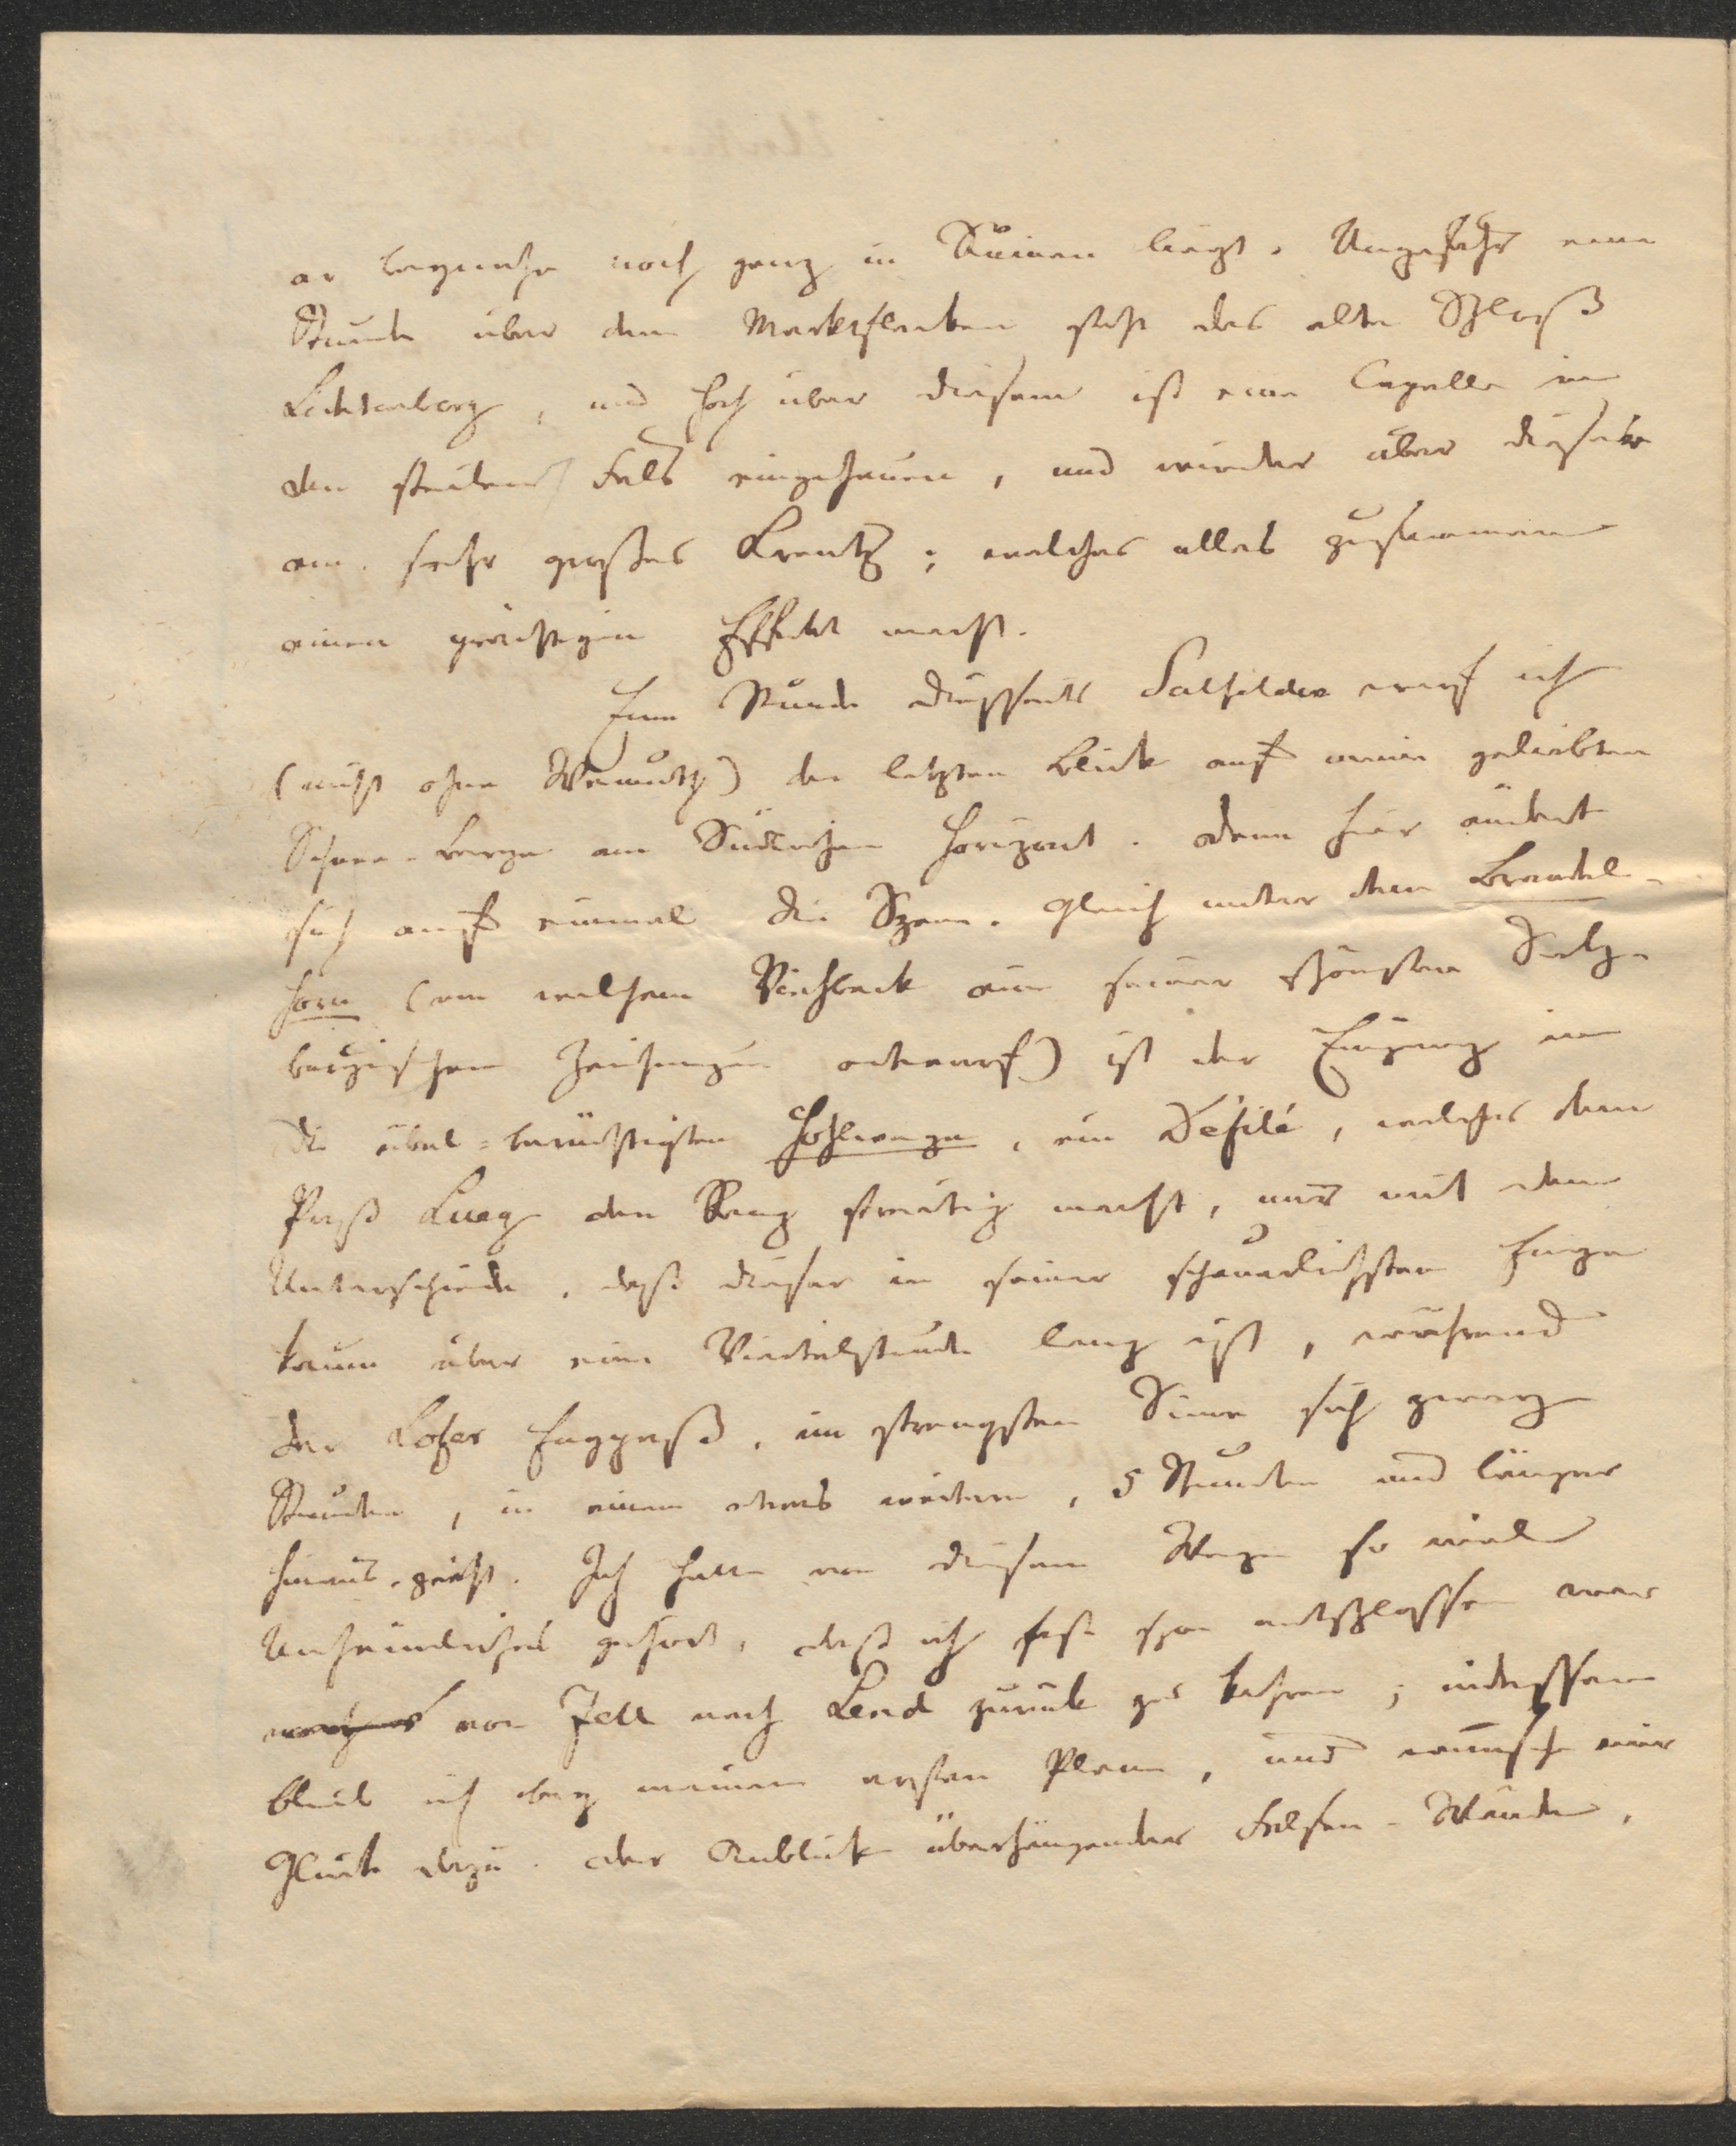 er beynahe noch ganz in Ruinen liegt. Ungefähr eine
Stunde über dem Marktflecken steht das alte Schloß
Lichtenberg, und hoch über diesem ist eine Capelle in
den steilen Fels eingehauen, und wieder über dieser
ein sehr großes Kreutz; welches alles zusammen
einen prächtigen Effekt macht.
Eine Stunde diesseits Salfelden warf ich
(nicht ohne Wemuth) den letzten Blick auf meine geliebten
Schnee-Berge am Südlichen Horizont. denn hier ändert
sich auf einmal die Szene. Gleich unter dem Brandel-
horn (von welchem Viehbeck eine seiner schönsten Salz-
burgischen Zeichnungen entwarf) ist der Eingang in
die übel-berüchtigten Hohlwege, ein Défilé, welches dem
Paß Lueg den Rang streitig macht, nur mit dem
Unterschiede, daß dieser in seiner schauerlichsten Enge
kaum über eine Viertelstunde lang ist, während
der Lofer Engpaß, im strengsten Sinne sich zwey
Stunden, in einem etwas weitern, 5 Stunden und länger
hinaus zieht. Ich hatte von diesem Wege so viel
Unheimliches gehört, daß ich fast schon entschlossen war
von Zell nach Lend zurück zu kehren; indessen
blieb ich bey meinem ersten Plane, und wünsche mir
Glück dazu. der Anblick überhängender Felsen-Wände,